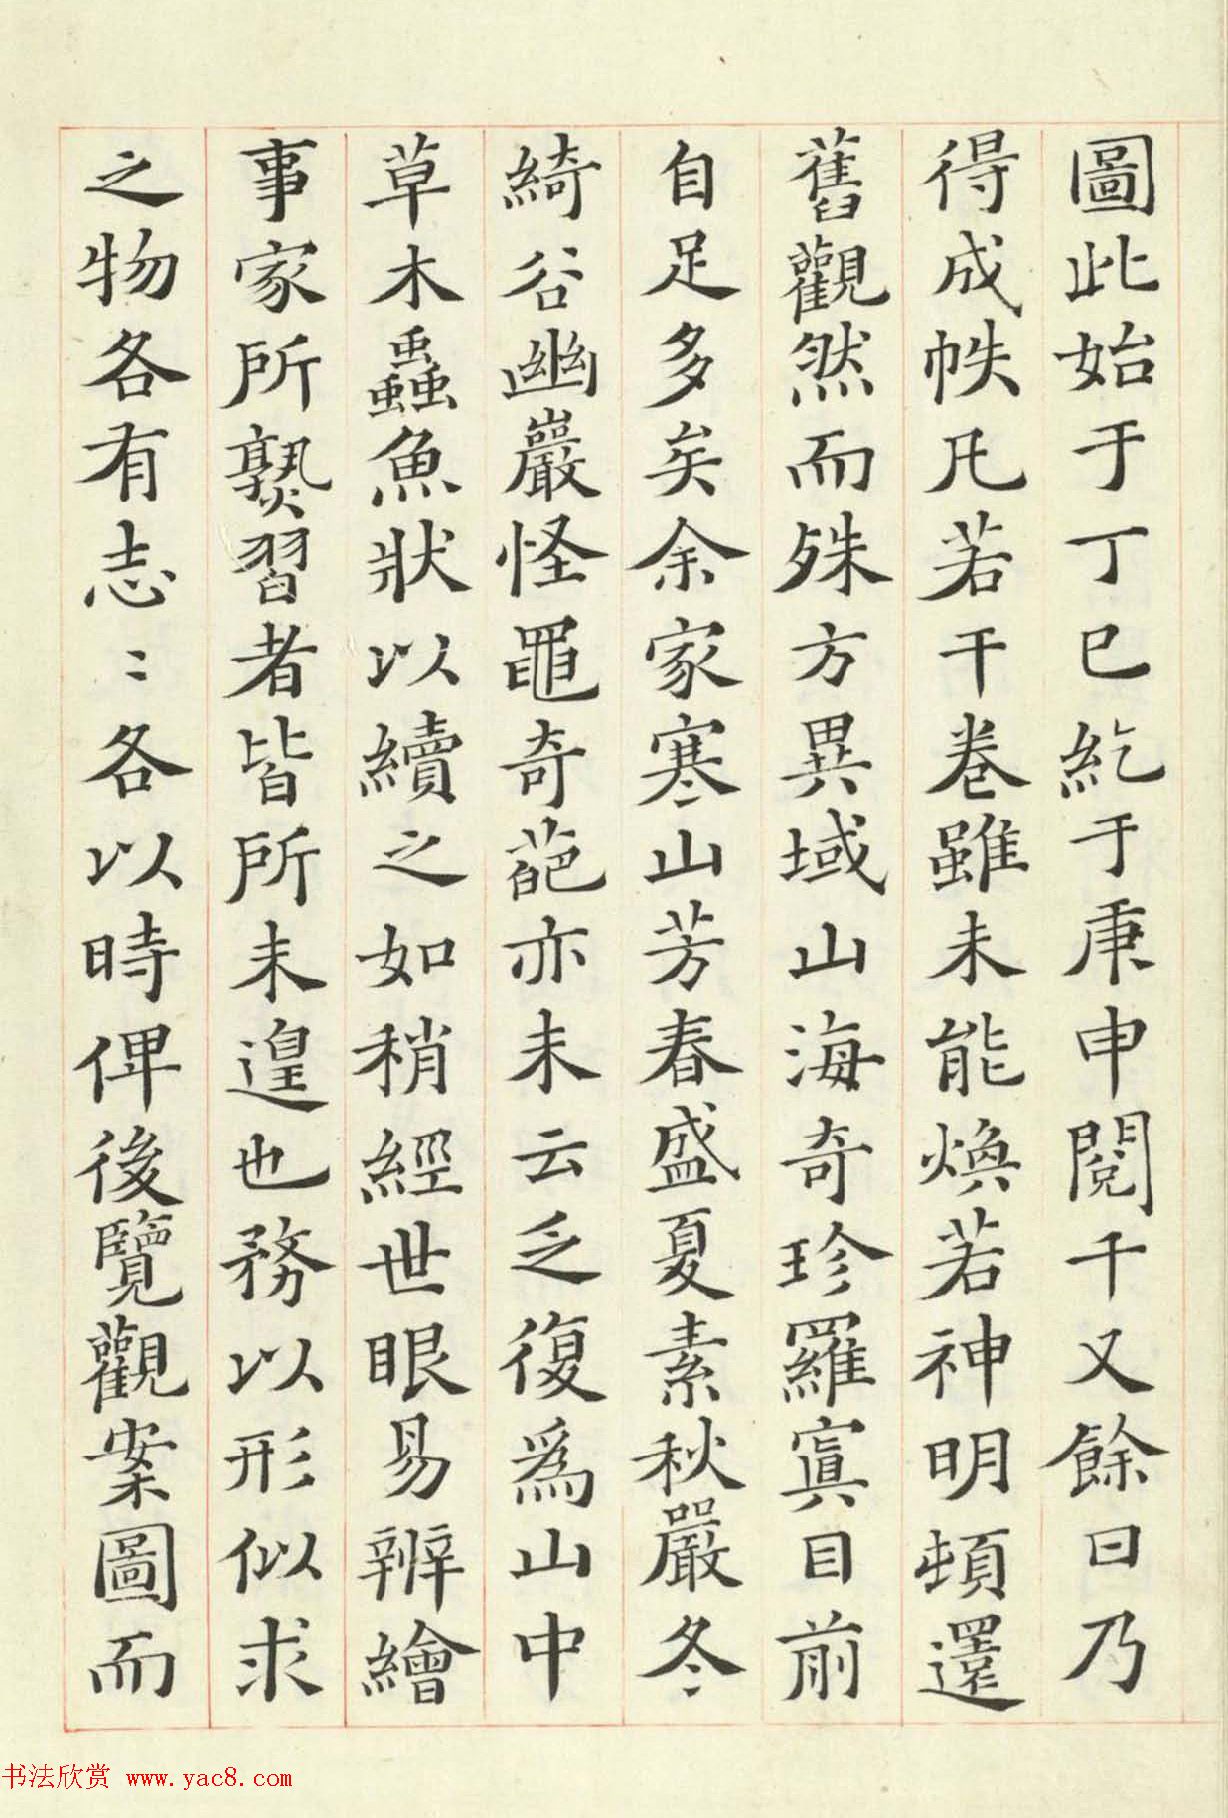 圖此始于丁巳紇于庚申閱千又餘日乃
得成帙凡若干卷雖未能煥若神明頓還
舊觀然而殊方異域山海奇珍羅寘目前
自足多矣余家寒山芳春盛夏素秋嚴冬
綺谷幽巖怪黽奇葩亦未云乏復為山中
草木蟲魚狀以續之如稍經世眼易辨繪
事家所熟習者皆所未遑也務以形似求
之物各有志〻各以時俾後覽觀案圖而
书法欣赏 www.yac8.com